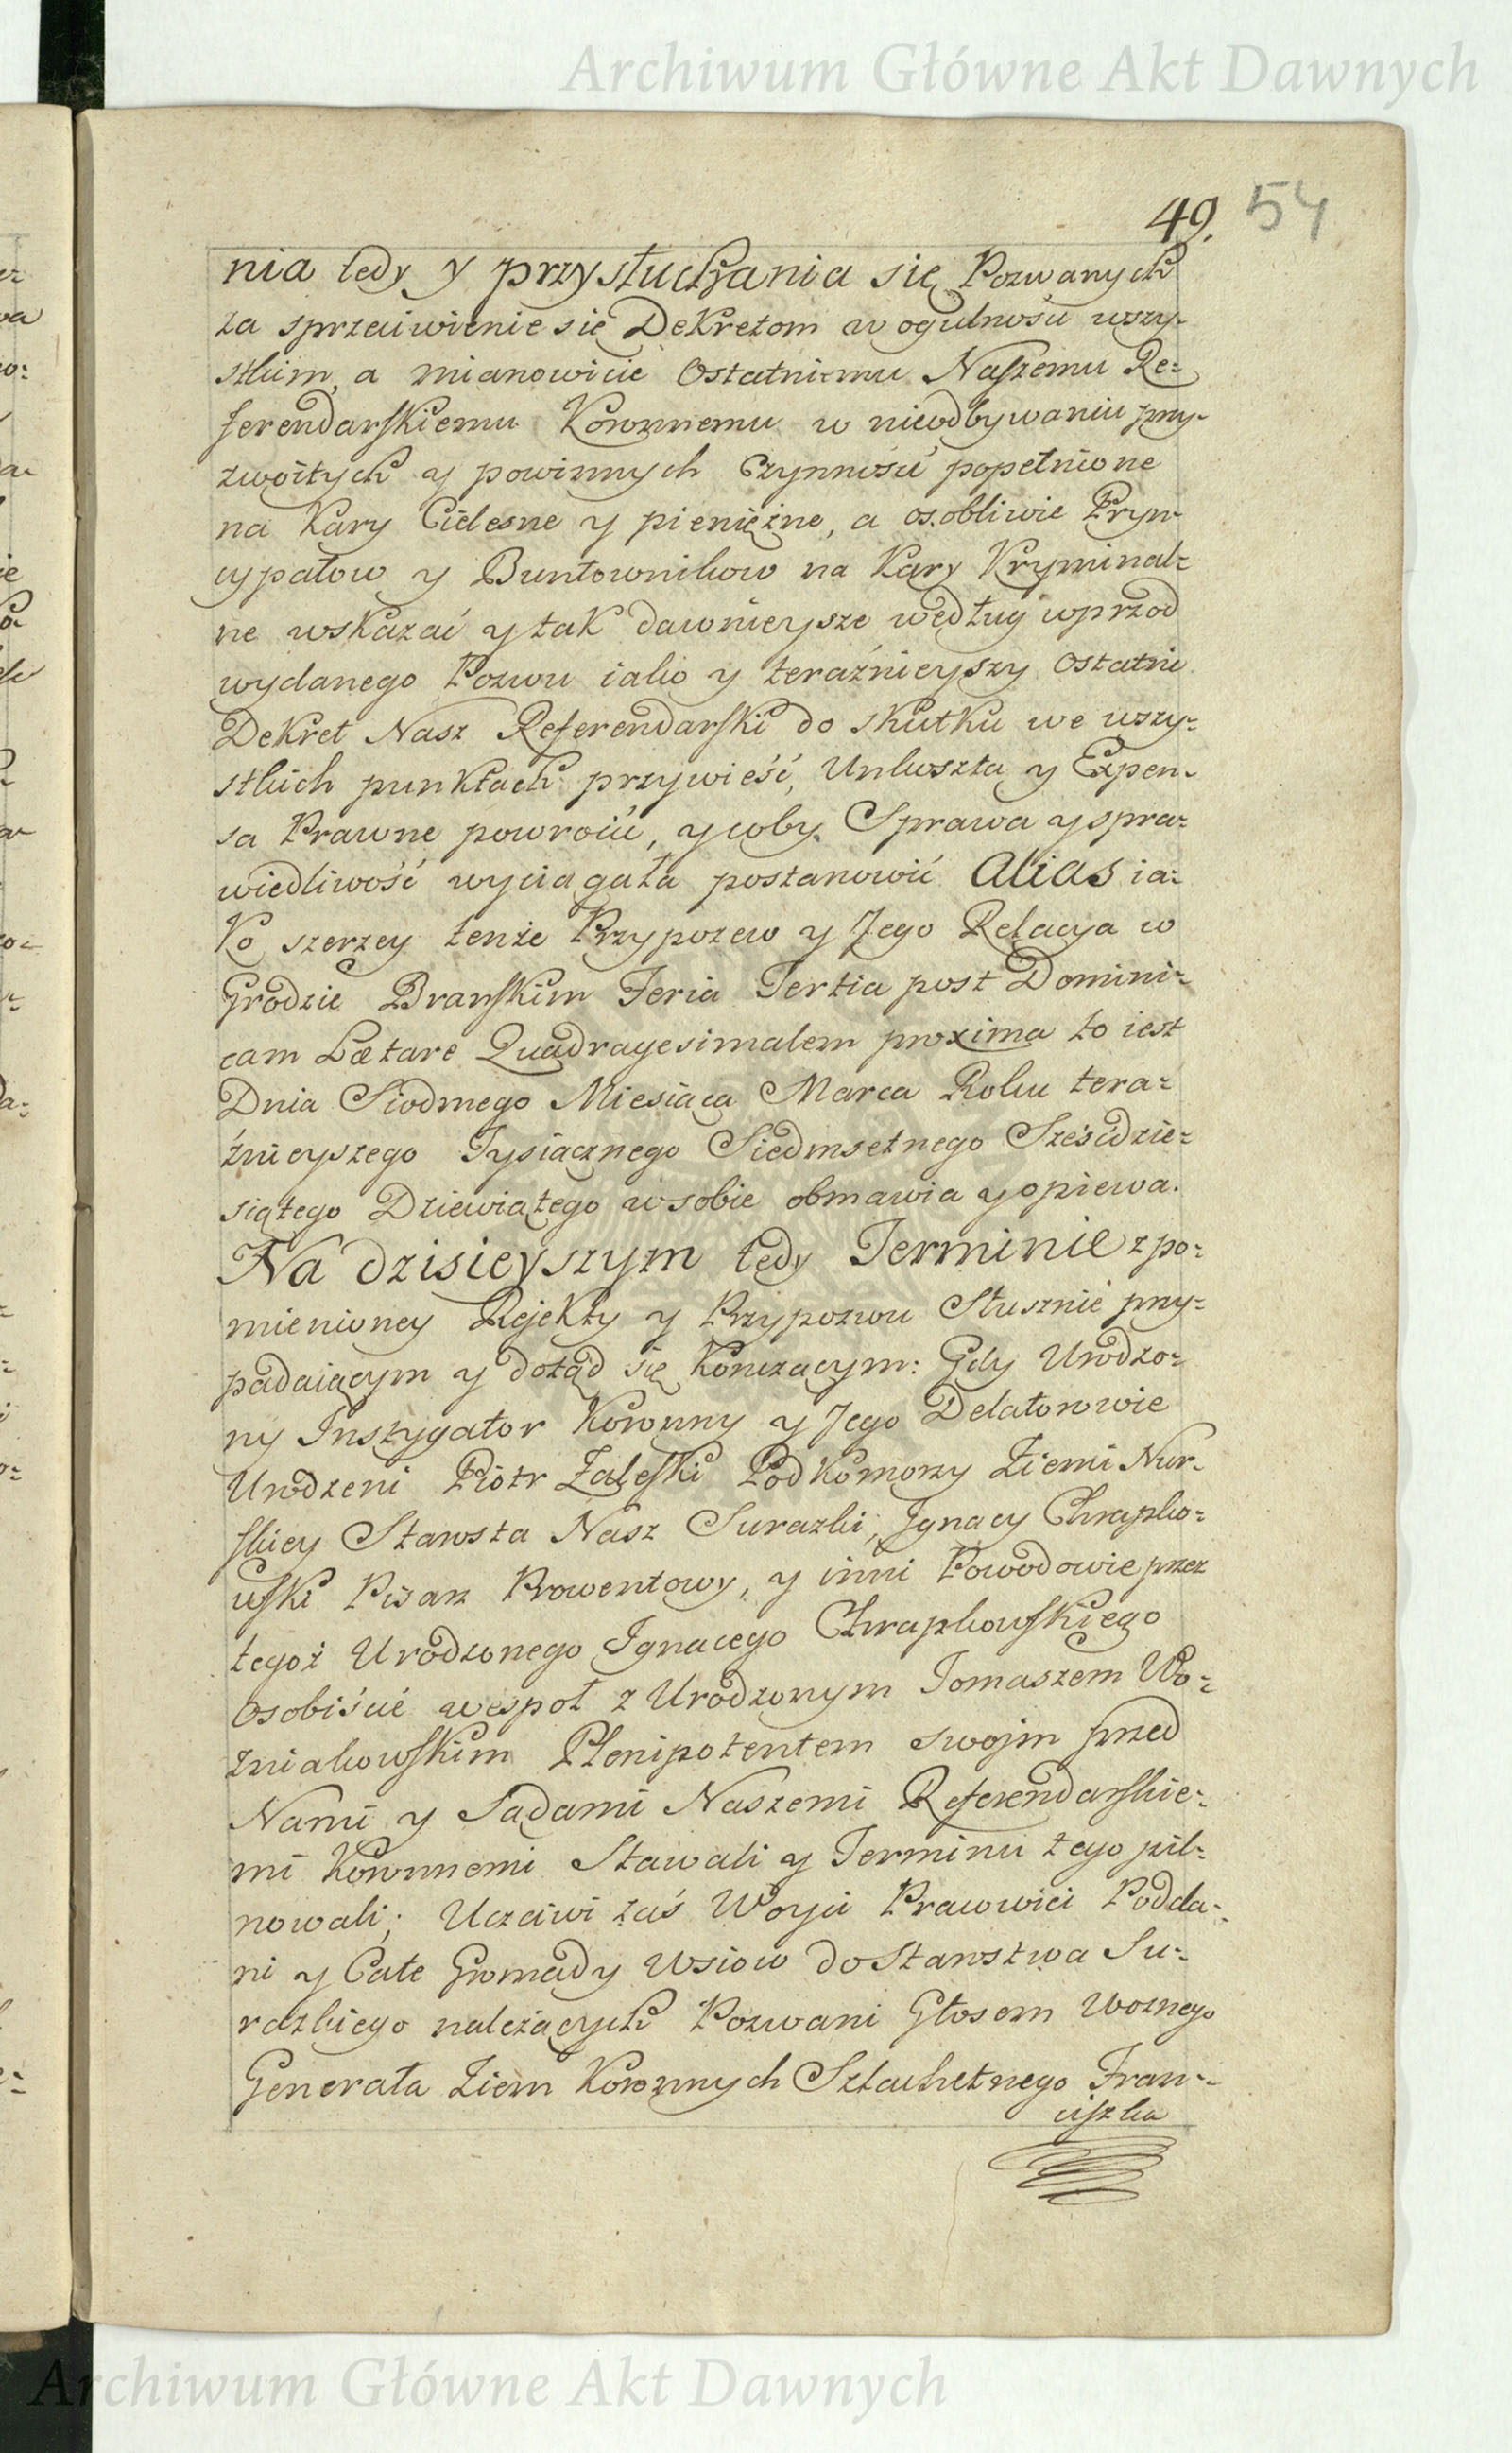 Archiwum Główne Akt Dawnych
49. 54
nia tedy y przysłuchania się Pozwanych
za sprzeiwienie sie Dekretom w ogulnosci wszy-
stkim, a mianowicie Ostatniemu Naszemu Re=
ferendarskiemu Koronnemu w nieodbywaniu przy-
zwoitych y powinnych Czynności popełnione
na Kary Cielesne y pieniężne, a osobliwie Pryn
cypałow y Buntownikow na Kary Kryminal=
ne wskazać y tak dawnieysze według wprzod
wydanego Pozwu iako y teraźnieyszy Ostatni
Dekret Nasz Referendarski do skutku we wszy=
stkich punktach przywieść, Unkoszta y Expen-
sa Prawne powrocić, y coby Sprawa y spra=
wiedliwość wyciagała postanowić Alias ia=
ko szerzey tenże Przypozew y Jego Relacya w
Grodzie Branskim Feria Tertia post Domini=
cam Lætare Quadragesimalem proxima to iest
Dnia Siodmego Miesiąca Marca Roku tera=
źnieyszego Tysiącznego Siedmsetnego Sześćdzie=
siątego Dziewiątego w sobie obmawia y opiewa.
Na dzisieyszym tedy Terminie z po=
mienioney Rejekty y Przypozwu Słusznie przy=
padaiącym y dotąd się Konczącym: Gdy Urodzo=
ny Instygator Koronny y Jego Delatorowie
Urodzeni Piotr Zaleski Podkomorzy Ziemi Nur-
skiey Starosta Nasz Surazki, Ignacy Chrapko=
wski Pisarz Prowentowy, y inni Powodowie przez
tegoż Urodzonego Ignacego Chrapkowskiego
Osobiście wespoł z Urodzonym Tomaszem Wo=
zniakowskim Plenipotentem swojm przed
Nami y Sądami Naszemi Referendarskie=
mi Koronnemi Stawali y Terminu tego pil=
nowali; Uczciwi zaś Woyci Prawowici Podda=
ni y Całe Gromady Wsiow do Starostwa Su=
razkiego należących Pozwani Głosem Woznego
Generała Ziem Koronnych Szlachetnego Fran=
ciszka
Archiwum Główne Akt Dawnych